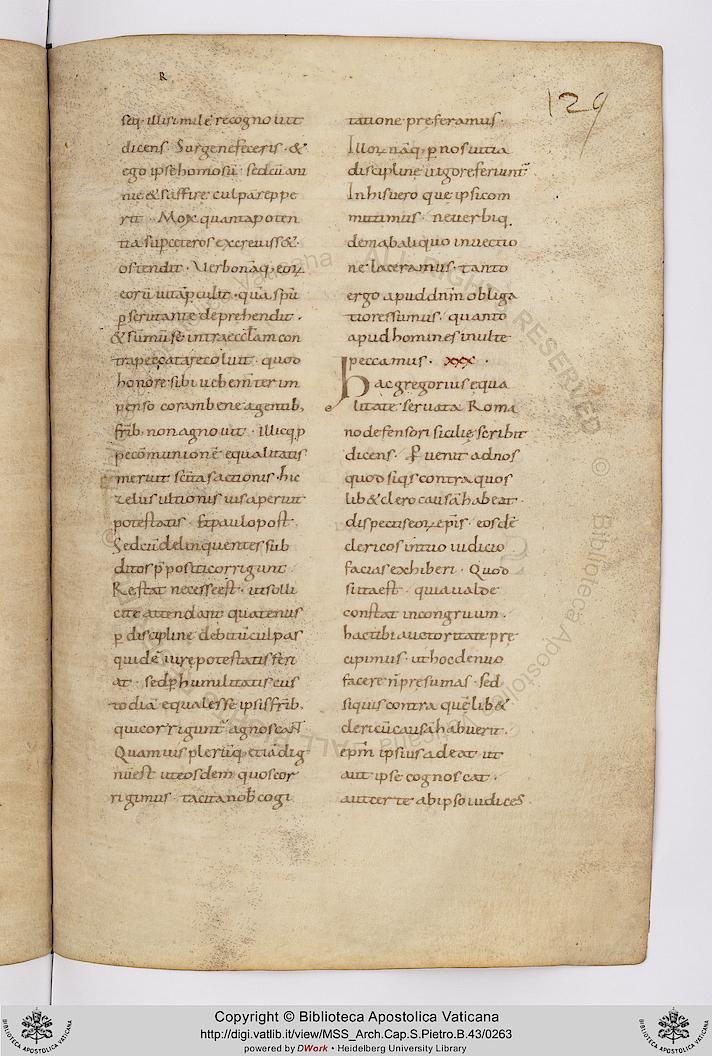 R
129
seq illi similē recognovit
dicens. Surge ne feceris. &
ego ipse homo sū. sed cū ani
nie & saffire culpā reppe
rit. Mox quanta poten
tia sup ceteros excreviss&.
ostendit. Verbo nāq. eoꝝ
eorū vitā pculit. quā spū
ꝑscrutante deprehendit.
& sūmū se intra eccłam con
tra peccata recoluit. quod
honore sibi vehemt̄er im
penso coram bene agentib,
frīb. non agnovit. Illic qꝑ
pe cōmunionē equalitatis
meruit scītas actionis. hic
zelus ultionis ius aperuit
potestatis. Et paulo post.
Sed cū delinquentes sub
ditos p̄positi corrigunt
Restat necesse est. ut solli
cite attendant quatenus
ꝑ discipline debitū culpas
quidē iure potestatis feri
at. sed ꝑ humilitatis cus
todiā equales se ipsis frīb.
qui corrigunt᷑ agnoscañt
Quamvis plerūq. etiā dig
nū est ut eosdem quos cor
rigimus. tacita nob̄ cogi
tatione preferamus.
Illoꝝ nāq. ꝑ nos vitia
discipline vigore feriunt᷑
In his vero que ipsi com
mittimus. nec verbi q.
dem ab aliquo invectio
ne laceramur. tanto
ergo apud dn̄m obliga
tiores sumus. quanto
apud homines inulte
peccamus. xxx.
hac gregorius equa
litate servata Roma
no defensori sicilię scribit
dicens. Pervenit ad nos
quod siq̄s contra quos
lib& clero causā habeat.
dispectis eoꝝ ep̄is. eosdē
clericos in tuo iudicio
facias exhiberi. Quod
si ita est. quia valde
constat incongruum.
hac tibi auctoritate pre
cipimus. ut hoc denuo
facere n̄ presumas. sed
si quis contra quēlib&
clericū causā habuerit.
epm̄ ipsius adeat. ut
aut ipse cognoscat.
aut certe ab ipso iudices
Copyright © Biblioteca Apostolica Vaticana
http://digi.vatlib.it/view/MSS_Arch.Cap.S.Pietro.B.43/0263
powered by DWork • Heidelberg University Library